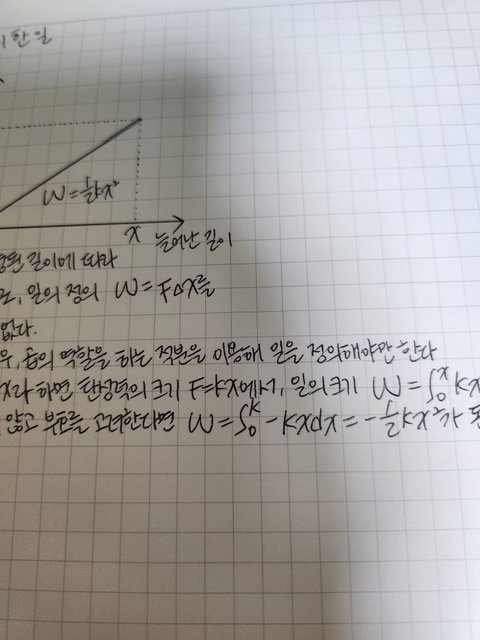 한 일
W = ½kx²
x 늘어난 길이
길이에 따라
, 일의 정의 W = FΔx를
없다.
, 합의 역할을 하는 적분을 이용해 일을 정의해야만 한다
x라 하면 탄성력의 크기 F=kx에서, 일의 크기 W = ∫₀ˣ kx
않고 부호를 고려한다면 W = ∫₀ˣ -kxdx = -½kx²가